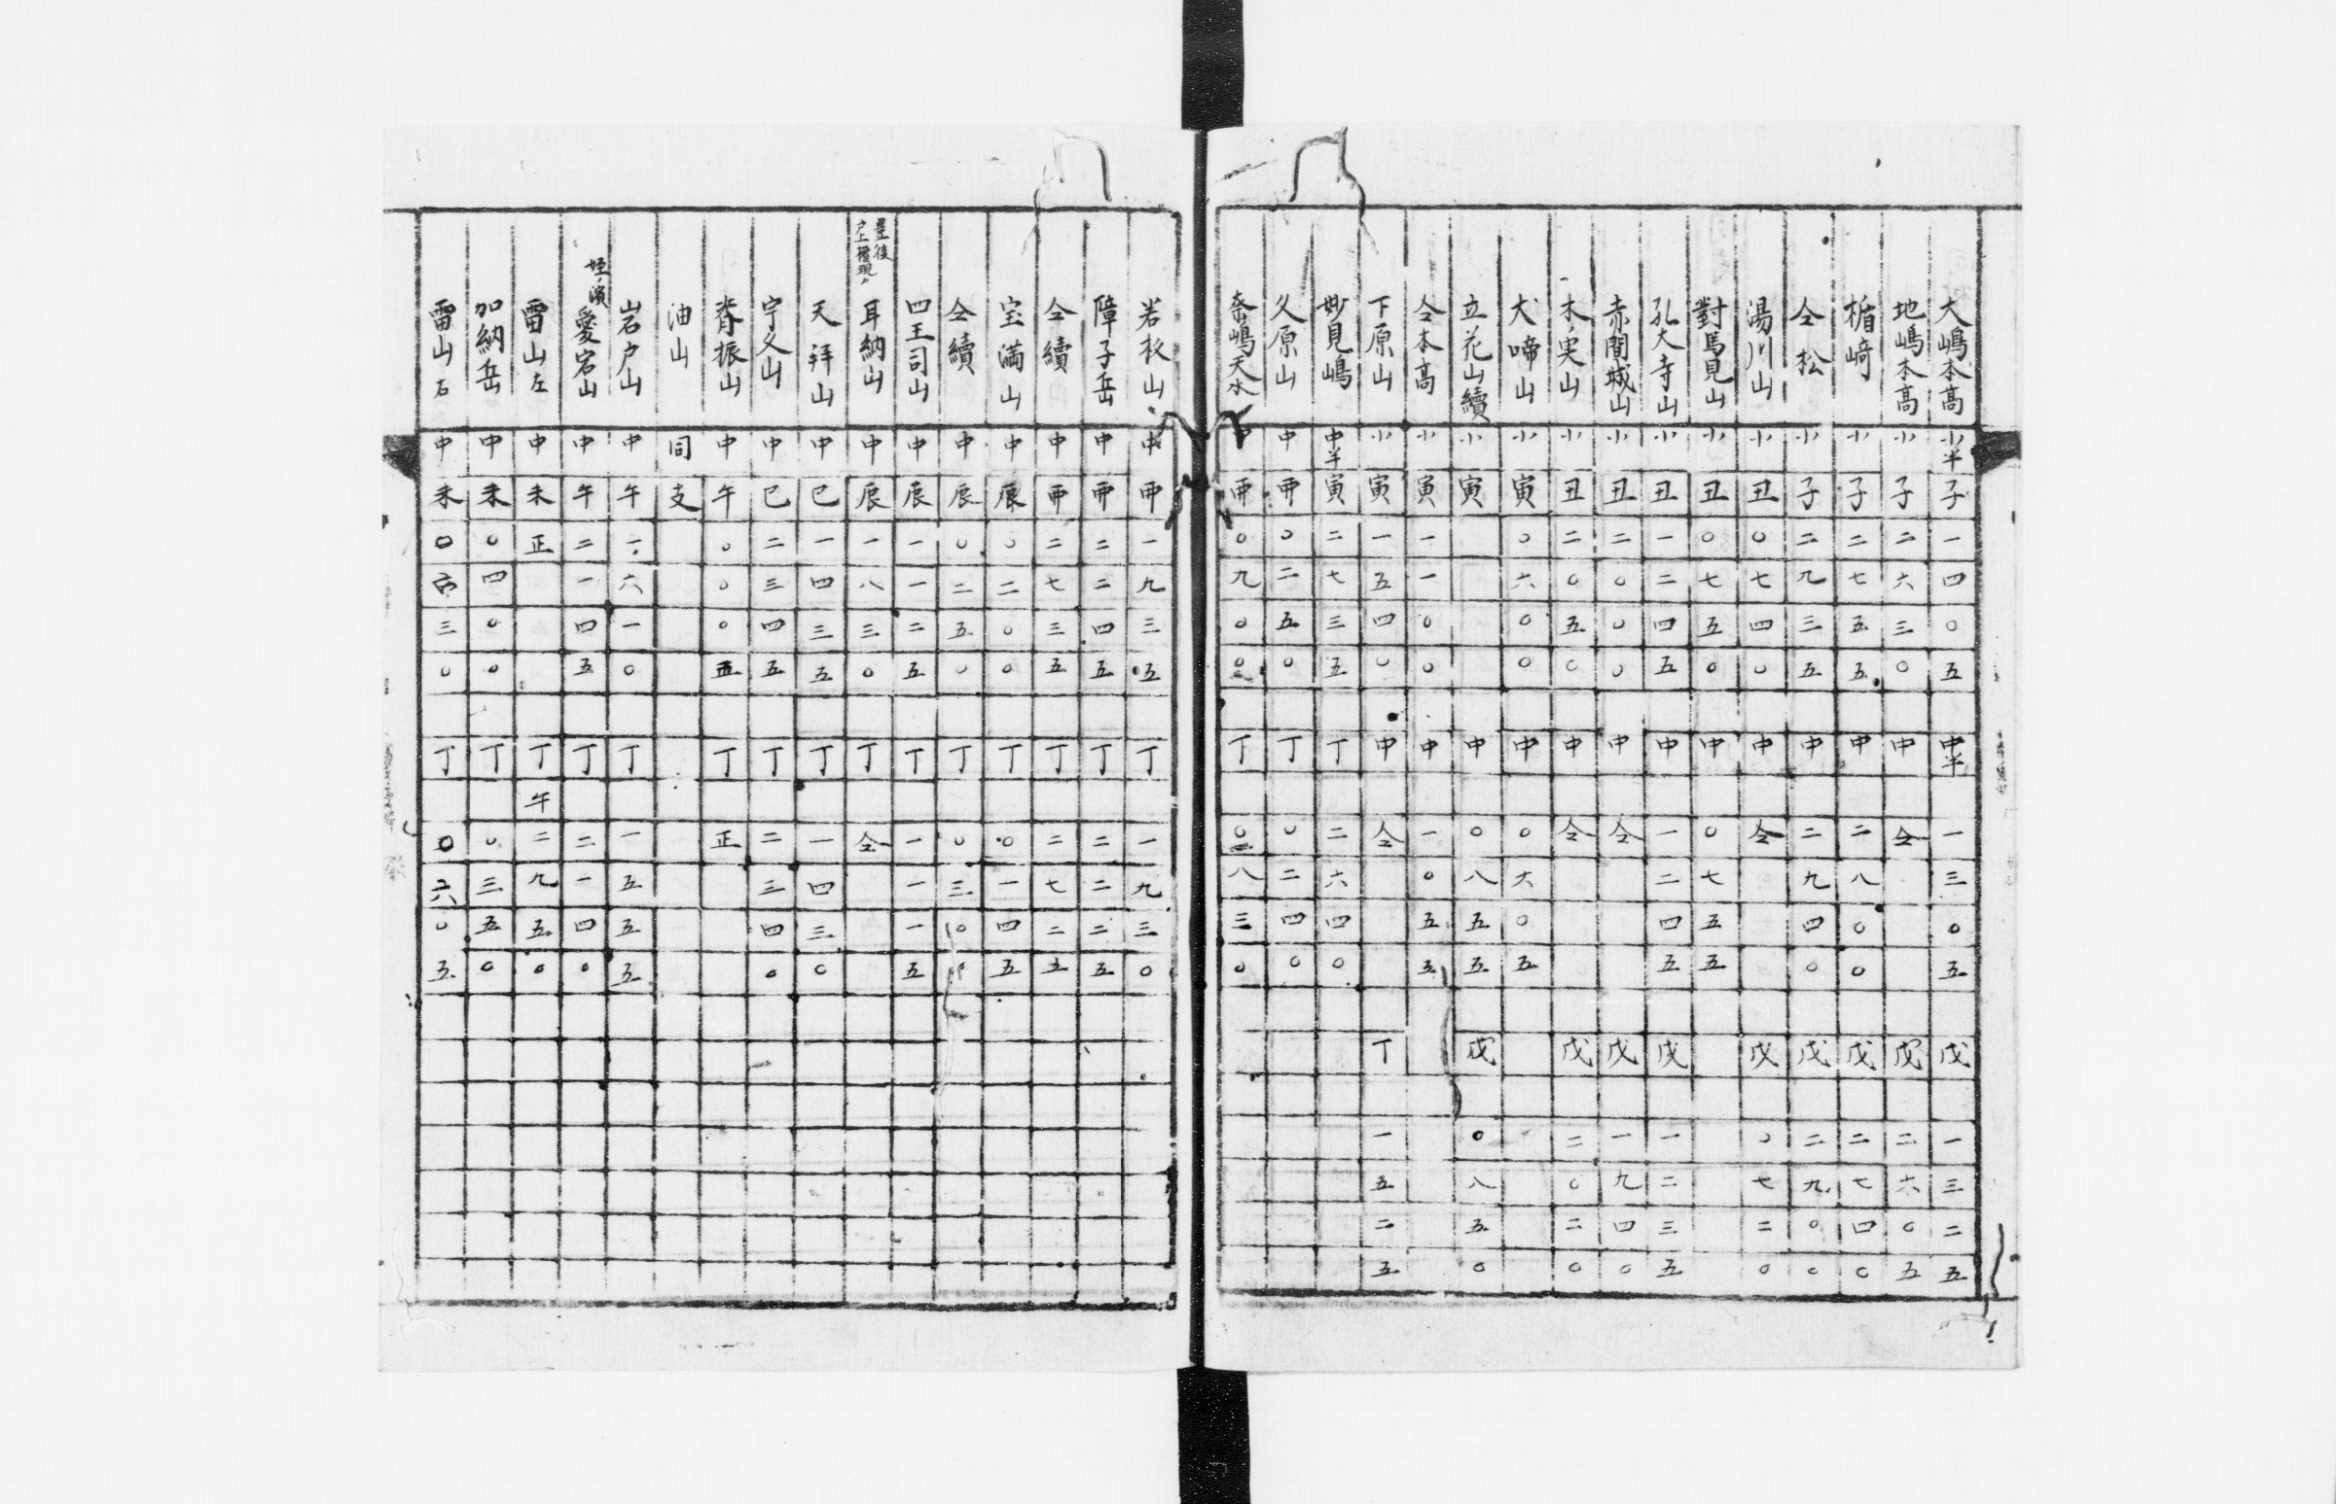 大嶋本髙 小半 子 一 四 〇 五 中半 一 三 〇 五 戊 一 三 二 五
地嶋本髙 小 子 二 六 三 〇 中 仝 戊 二 六 〇 五
楯﨑 小 子 二 七 五 五 中 二 八 〇 〇 戊 二 七 四 〇
仝松 小 子 二 九 三 五 中 二 九 四 〇 戊 二 九 〇 〇
湯川山 小 丑 〇 七 四 〇 中 仝 戊 〇 七 二 〇
對馬見山 小 丑 〇 七 五 〇 中 〇 七 五 五
孔大寺山 小 丑 一 二 四 五 中 一 二 四 五 戊 一 二 三 五
赤間城山 小 丑 二 〇 〇 〇 中 仝 戊 一 九 四 〇
木ノ実山 小 丑 二 〇 五 〇 中 仝 戊 二 〇 二 〇
犬啼山 小 寅 〇 六 〇 〇 中 〇 六 〇 五
立花山續 小 寅 中 〇 八 五 五 戊 〇 八 五 〇
仝本髙 小 寅 一 一 〇 〇 中 一 〇 五 五
下原山 小 寅 一 五 四 〇 中 仝 丁 一 五 二 五
妙見嶋 中半 寅 二 七 三 五 丁 二 六 四 〇
久原山 中 夘 〇 二 五 〇 丁 〇 二 四 〇
奈嶋天水 中 夘 〇 九 〇 〇 丁 〇 八 三 〇
若杦山 中 夘 一 九 三 五 丁 一 九 三 〇
障子岳 中 夘 二 二 四 五 丁 二 二 二 五
仝續 中 夘 二 七 三 五 丁 二 七 二 五
宝満山 中 辰 〇 二 〇 〇 丁 〇 一 四 五
仝續 中 辰 〇 二 五 〇 丁 〇 三 〇
四王司山 中 辰 一 一 二 五 丁 一 一 一 五
豊後戸上權現ノ 耳納山 中 辰 一 八 三 〇 丁 仝
天拜山 中 巳 一 四 三 五 丁 一 四 三 〇
宁文山 中 巳 二 三 四 五 丁 二 三 四 〇
脊振山 中 午 〇 〇 〇 五 丁 正
油山 同 支
岩戸山 中 午 一 六 一 〇 丁 一 五 五 五
姪ノ濱 愛宕山 中 午 二 一 四 五 丁 二 一 四 〇
雷山左 中 未 正 丁 午 二 九 五 〇
加納岳 中 未 〇 四 〇 〇 丁 〇 三 五 〇
雷山右 中 未 〇 六 三 〇 丁 〇 六 〇 五